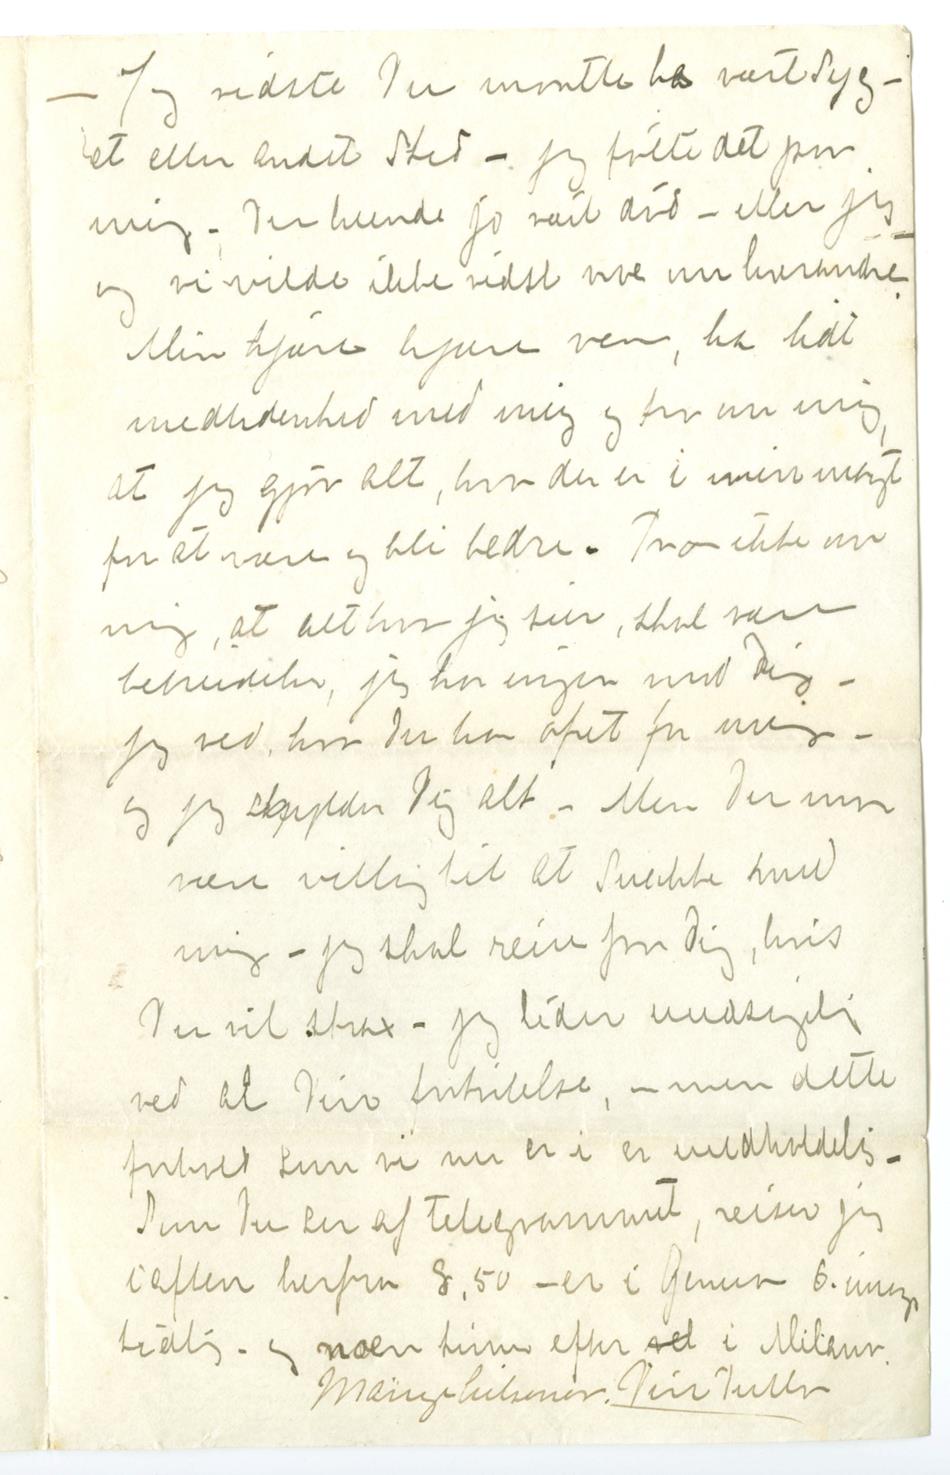 – Jeg vidste Du maatte ha vært syg –
et eller andet Sted – jeg følte det paa
mig – Du kunde jo vært død – eller jeg –
og vi vilde ikke vidst noe om hverandre.
Min kjære kjære ven, ha lidt
medlidenhed med mig og tro om mig,
at jeg gjør alt, hva der er i min magt
for at være og bli bedre. Tro ikke om
mig, at alt hva jeg sier, skal være
bebreidelser, jeg har ingen mod Dig –
jeg ved, hva Du har ofret for mig –
og jeg skylder Dig alt – Men Du maa
være villig til at snakke med
mig – jeg skal reise fra Dig, hvis
Du vil strax – jeg lider uudsigelig
ved al Din fortvilelse, – men dette
forhold som vi nu er i er uudholdelig –
Som Du ser af telegrammet, reiser jeg
iaften herfra 8,50 – er i Genua 6. imorg
tidlig – og noen timer efter i Milano.
Mange hilsener. Din Tulla